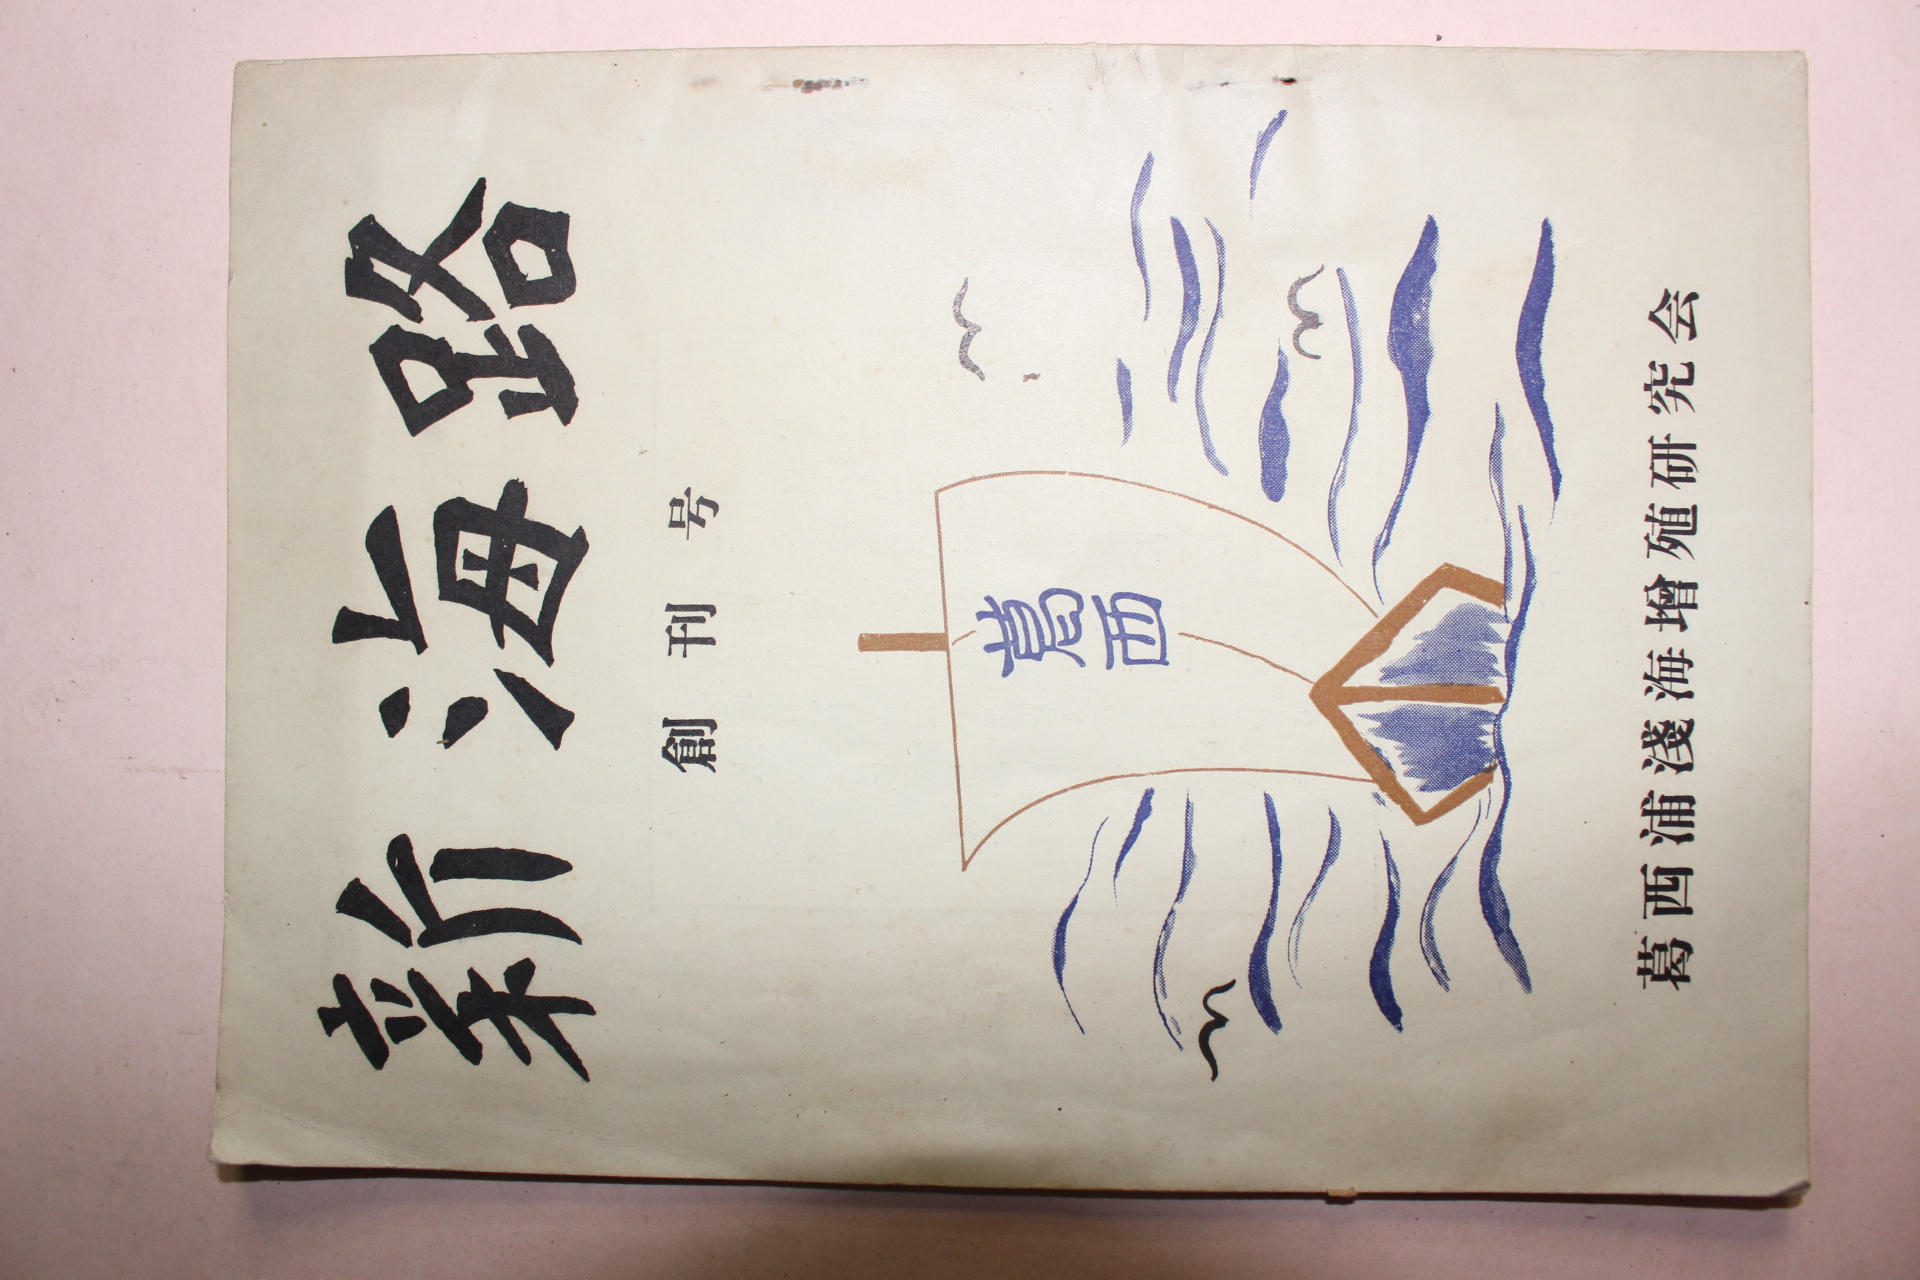 新海路
創刊号
葛西
葛西浦淺海増殖研究会